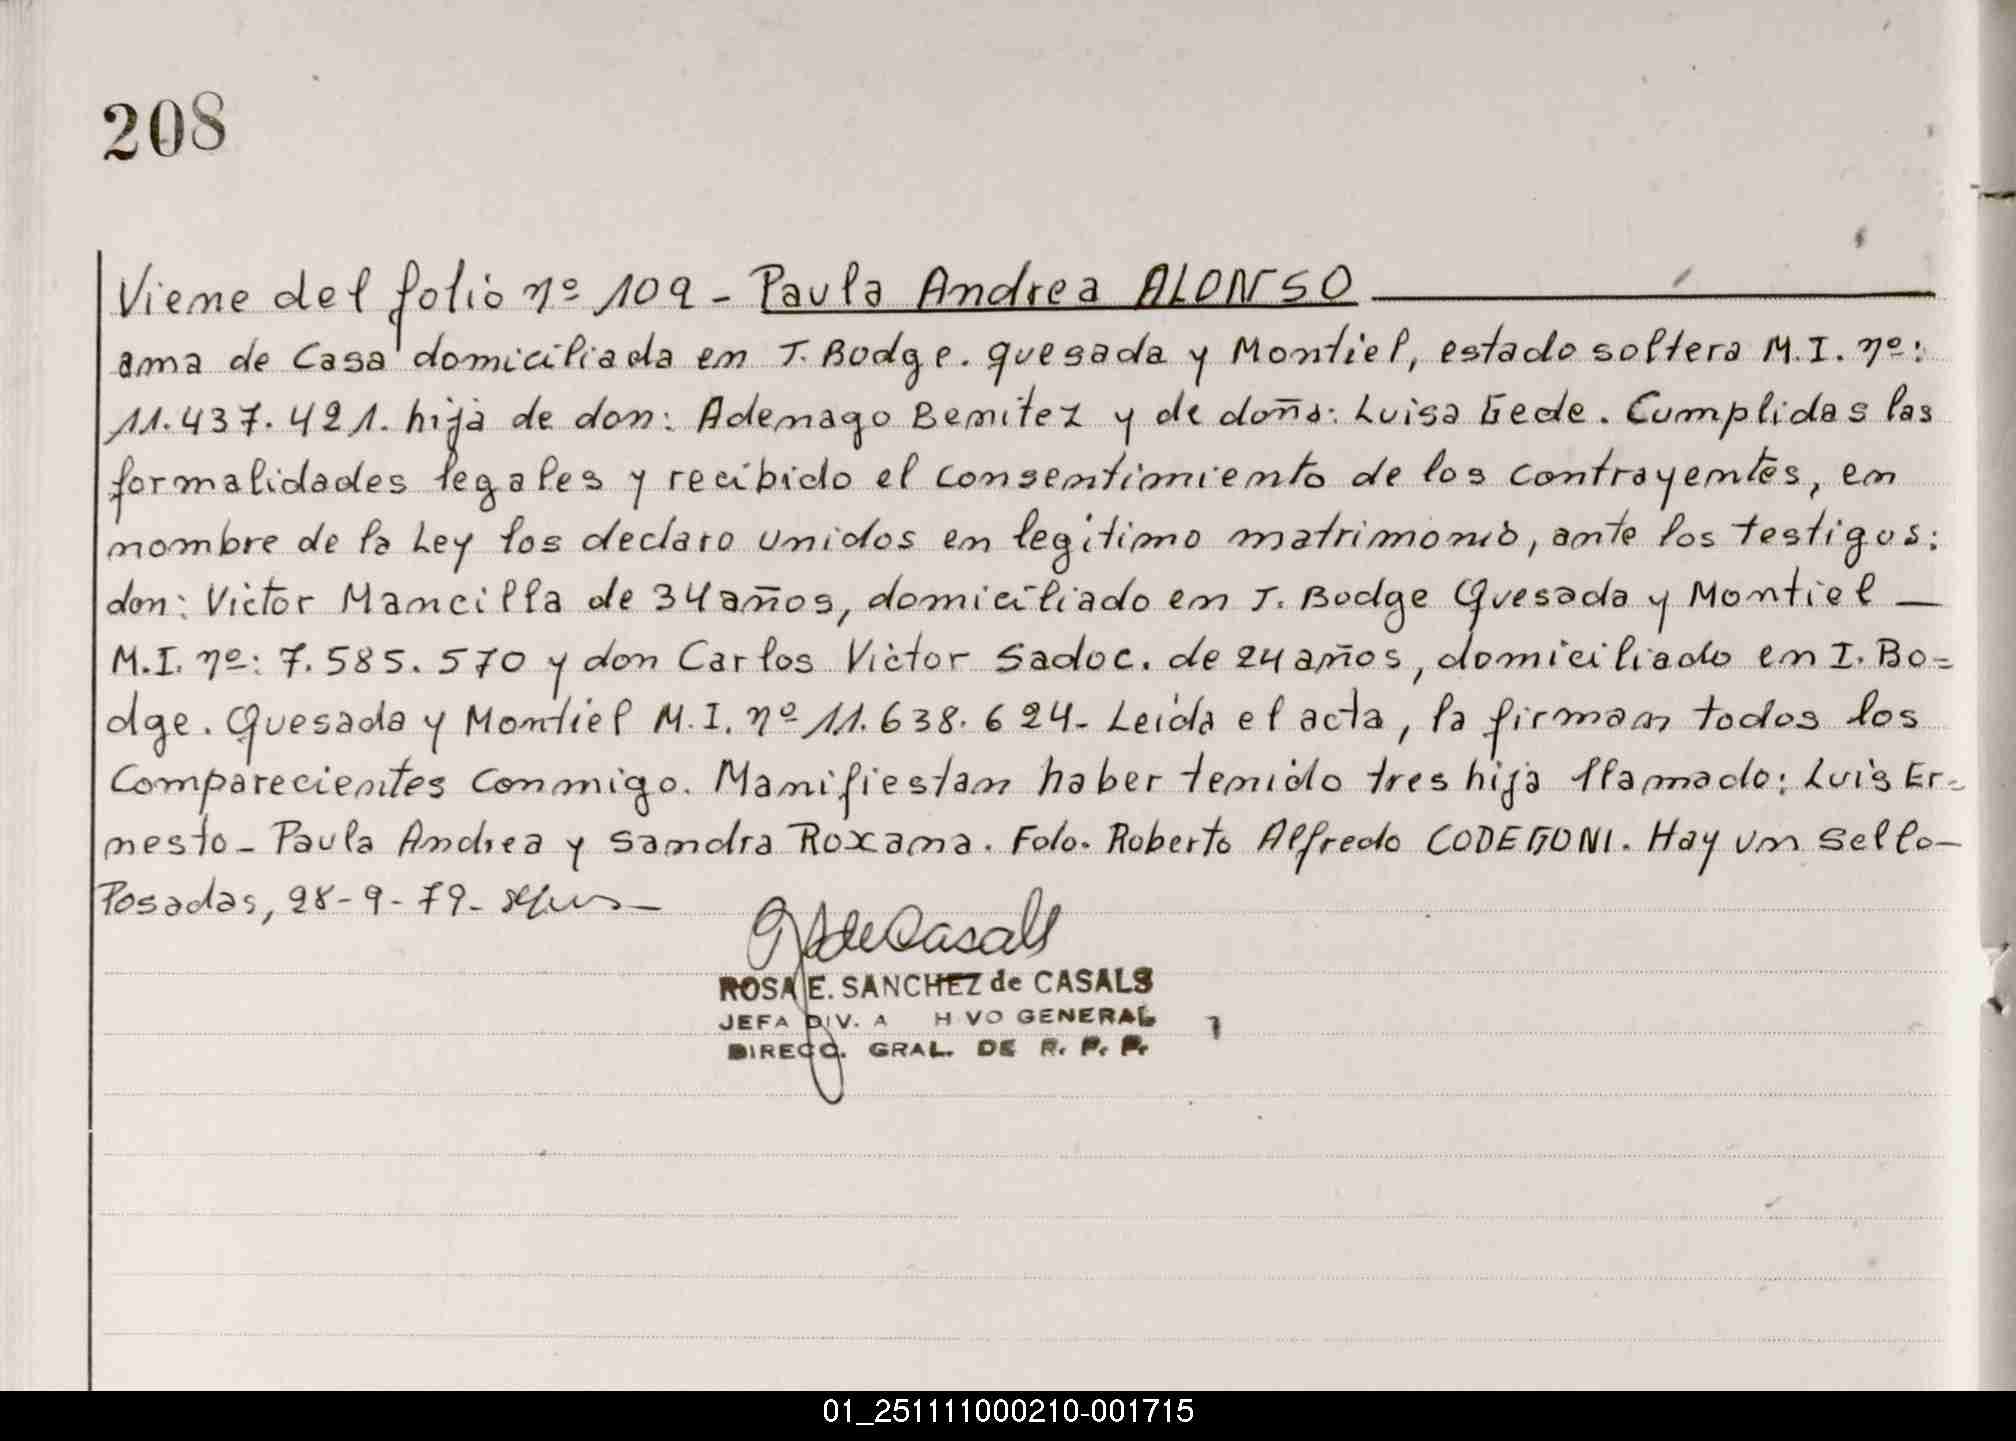 208
Viene del folio nº 109 - Paula Andrea ALONSO
ama de Casa domiciliada en T. Bodge. quesada y Montiel, estado soltera M.I. nº:
11.437.421. hija de don: Adenago Benitez y de doña: Luisa Gede. Cumplidas las
formalidades legales y recibido el consentimiento de los contrayentes, en
nombre de la Ley los declaro unidos en legítimo matrimonio, ante los testigos:
don: Victor Mancilla de 34 años, domiciliado en I. Bodge Quesada y Montiel —
M.I. nº: 7.585.570 y don Carlos Victor Sadoc. de 24 años, domiciliado en I. Bo=
dge. Quesada y Montiel M.I. nº 11.638.624- Leída el acta, la firman todos los
Comparecientes conmigo. Manifiestan haber tenido tres hija llamado: Luis Er=
nesto - Paula Andrea y Sandra Roxana. Fdo. Roberto Alfredo CODEGONI. Hay un sello-
Posadas, 28-9-79-
de Casals
ROSA E. SANCHEZ de CASALS
JEFA DIV. A H VO GENERAL
DIRECC. GRAL. DE R. P. P.
01_251111000210-001715